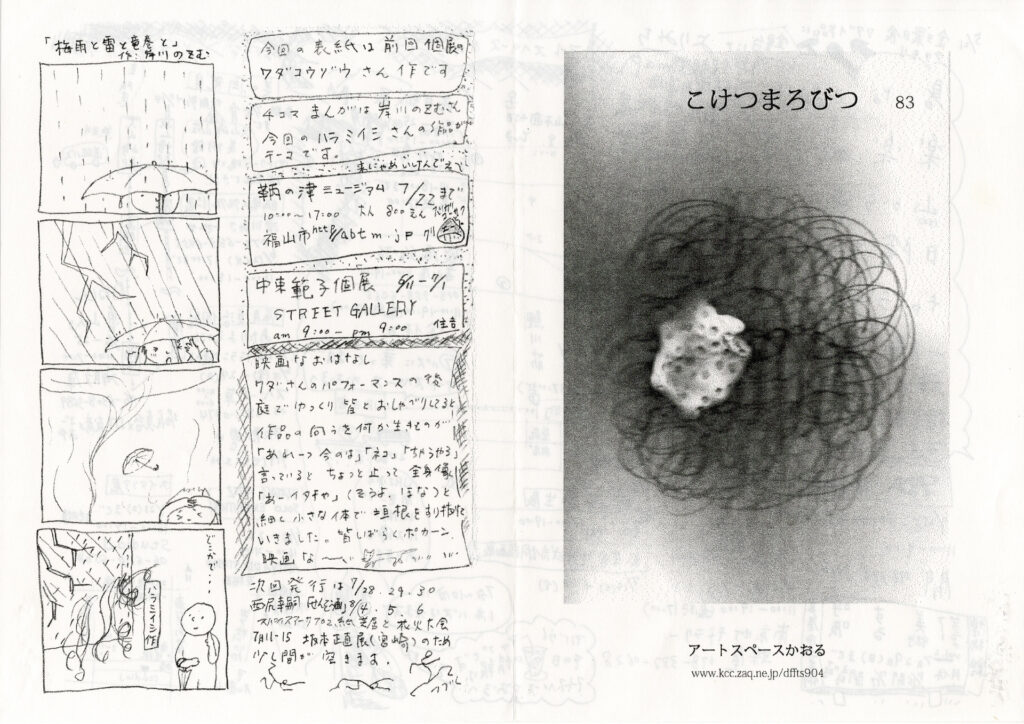 「梅雨と雷と竜巻と」
作:岸川のぞむ
どこかで・・
ハラミイシ作
今回の表紙は前回個展の
ワダコウゾウさん作です
4コマまんがは岸川のぞむさん
今回のハラミイシさんの作品が
テーマです。
鞆の津ミュージアム 7/22まで
10:00〜17:00 大人 800えん
福山市 http://abtm.jp
中東範子個展 6/11-7/1
STREET GALLERY
am 9:00 - pm 9:00 住吉
映画なおはなし
ワダさんのパフォーマンスの後
庭でゆっくり皆とおしゃべりしてると
作品の向うを何か生きものが
「あれーっ今のは」「ネコ」「ちがうやろ」
言っていると ちょっと止って全身像
「あーイタチや」(そうよ、ほな)と
細く小さな体で垣根をすり抜けて
いきました。皆しばらくポカーン、
映画な〜
次回発行は 7/28.29.30
8/4.5.6
紙芝居と花火大会
7/11-15 坂本正直展(宮崎)のため
少し間が空きます。
こけつまろびつ 83
アートスペースかおる
www.kcc.zaq.ne.jp/dffts904